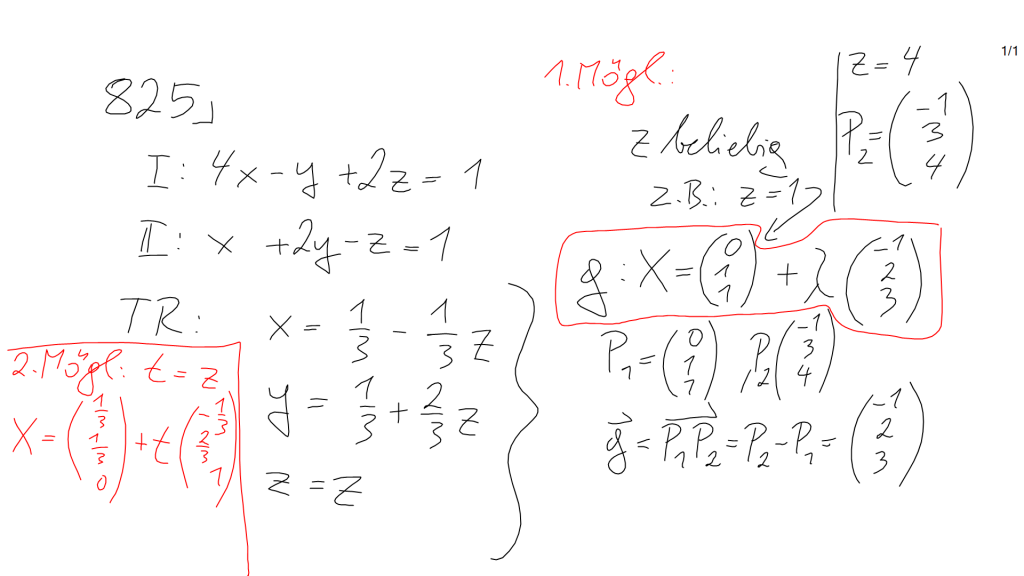 825)
I: 4x - y + 2z = 1
II: x + 2y - z = 1
TR:
x = 1/3 - 1/3 z
y = 1/3 + 2/3 z
z = z
2. Mögl.: t = z
X = (1/3 1/3 0) + t (-1/3 2/3 1)
1. Mögl.:
z beliebig
z.B.: z = 1
z = 4
P₂ = (-1 3 4)
g: X = (0 1 1) + λ (-1 2 3)
P₁ = (0 1 1) , P₂ (-1 3 4)
g⃗ = P₁P₂⃗ = P₂ - P₁ = (-1 2 3)
1/1